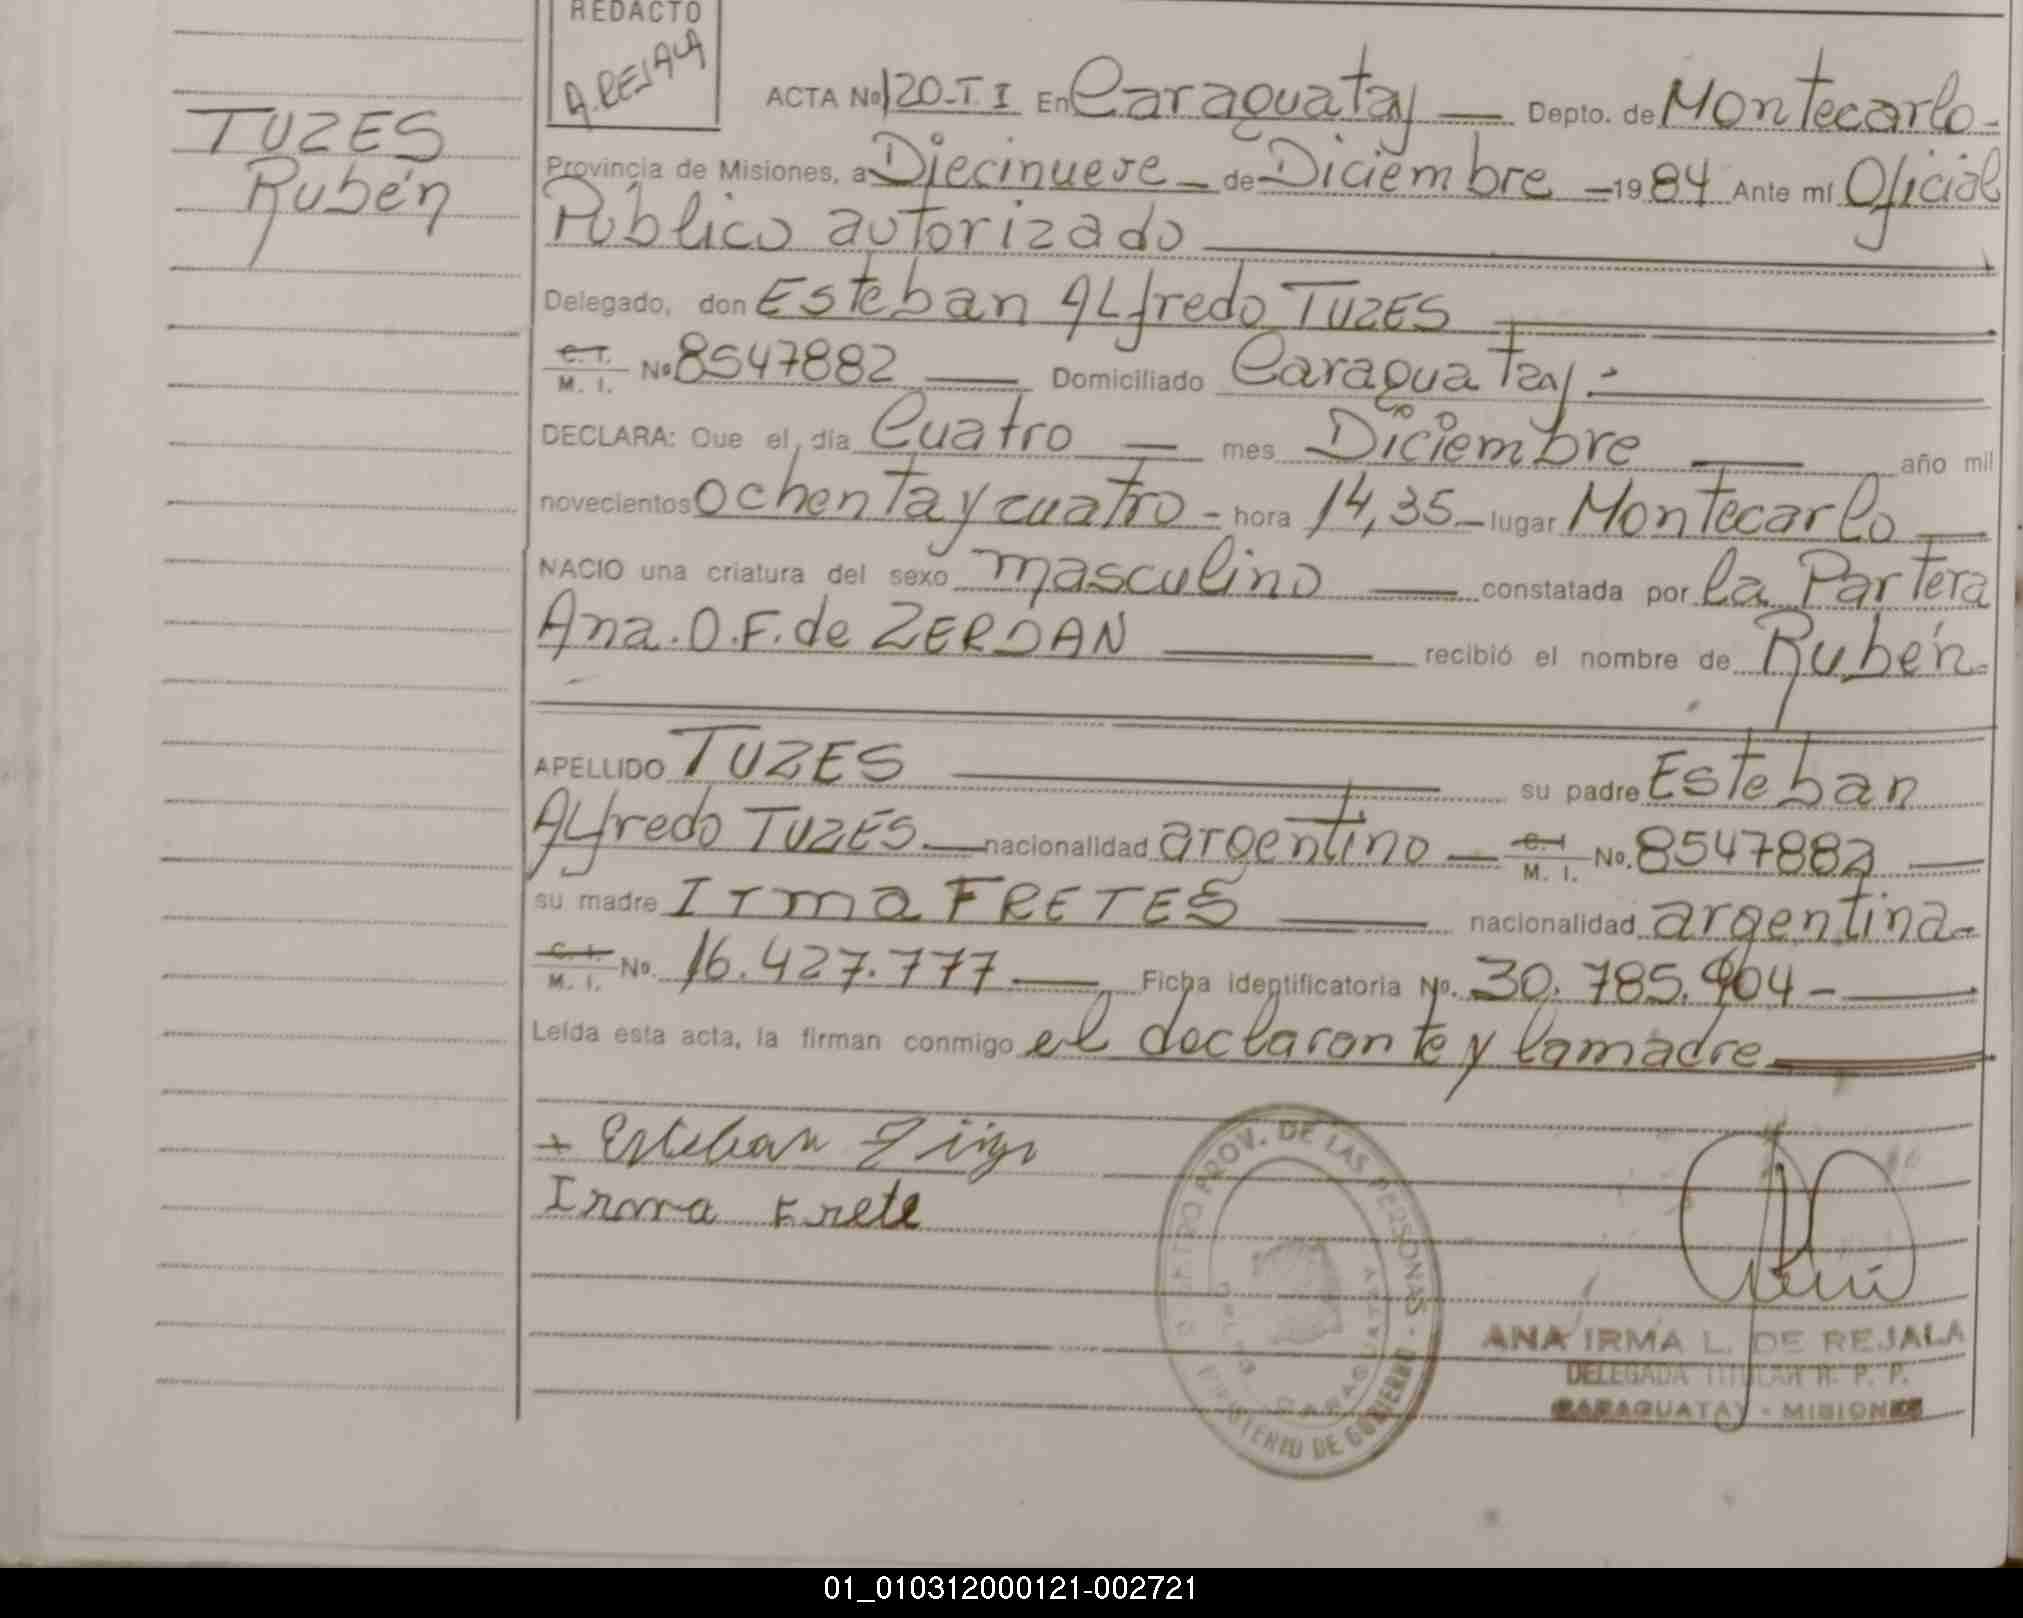 REDACTO
A. REJALA
TUZES
Rubén
ACTA No 120-T.I En Caraguatay — Depto. de Montecarlo-
Provincia de Misiones, a Diecinueve — de Diciembre — 1984 Ante mí Oficial
Público autorizado
Delegado, don Esteban Alfredo TUZES
C. I. / M. I. No 8547882 — Domiciliado Caraguatay.-
DECLARA: Que el día Cuatro — mes Diciembre — año mil
novecientos ochenta y cuatro - hora 14,35 — lugar Montecarlo —
NACIO una criatura del sexo masculino — constatada por la Partera
Ana. O. F. de ZERDAN — recibió el nombre de Rubén.
APELLIDO TUZES — su padre Esteban
Alfredo TUZES. — nacionalidad argentino — C. I. / M. I. No. 8547882 —
su madre Irma FRETES — nacionalidad argentina-
C. I. / M. I. No. 16.427.777 — Ficha identificatoria No. 30.785.904 -
Leída esta acta, la firman conmigo el declarante y la madre
+ Esteban
Irma Frete
PROV. DE LAS PERSONAS
CARAGUATAY
MINISTERIO DE GOBIERNO
ANA IRMA L. DE REJALA
DELEGADA TITULAR R. P. P.
CARAGUATAY - MISIONES
01_010312000121-002721